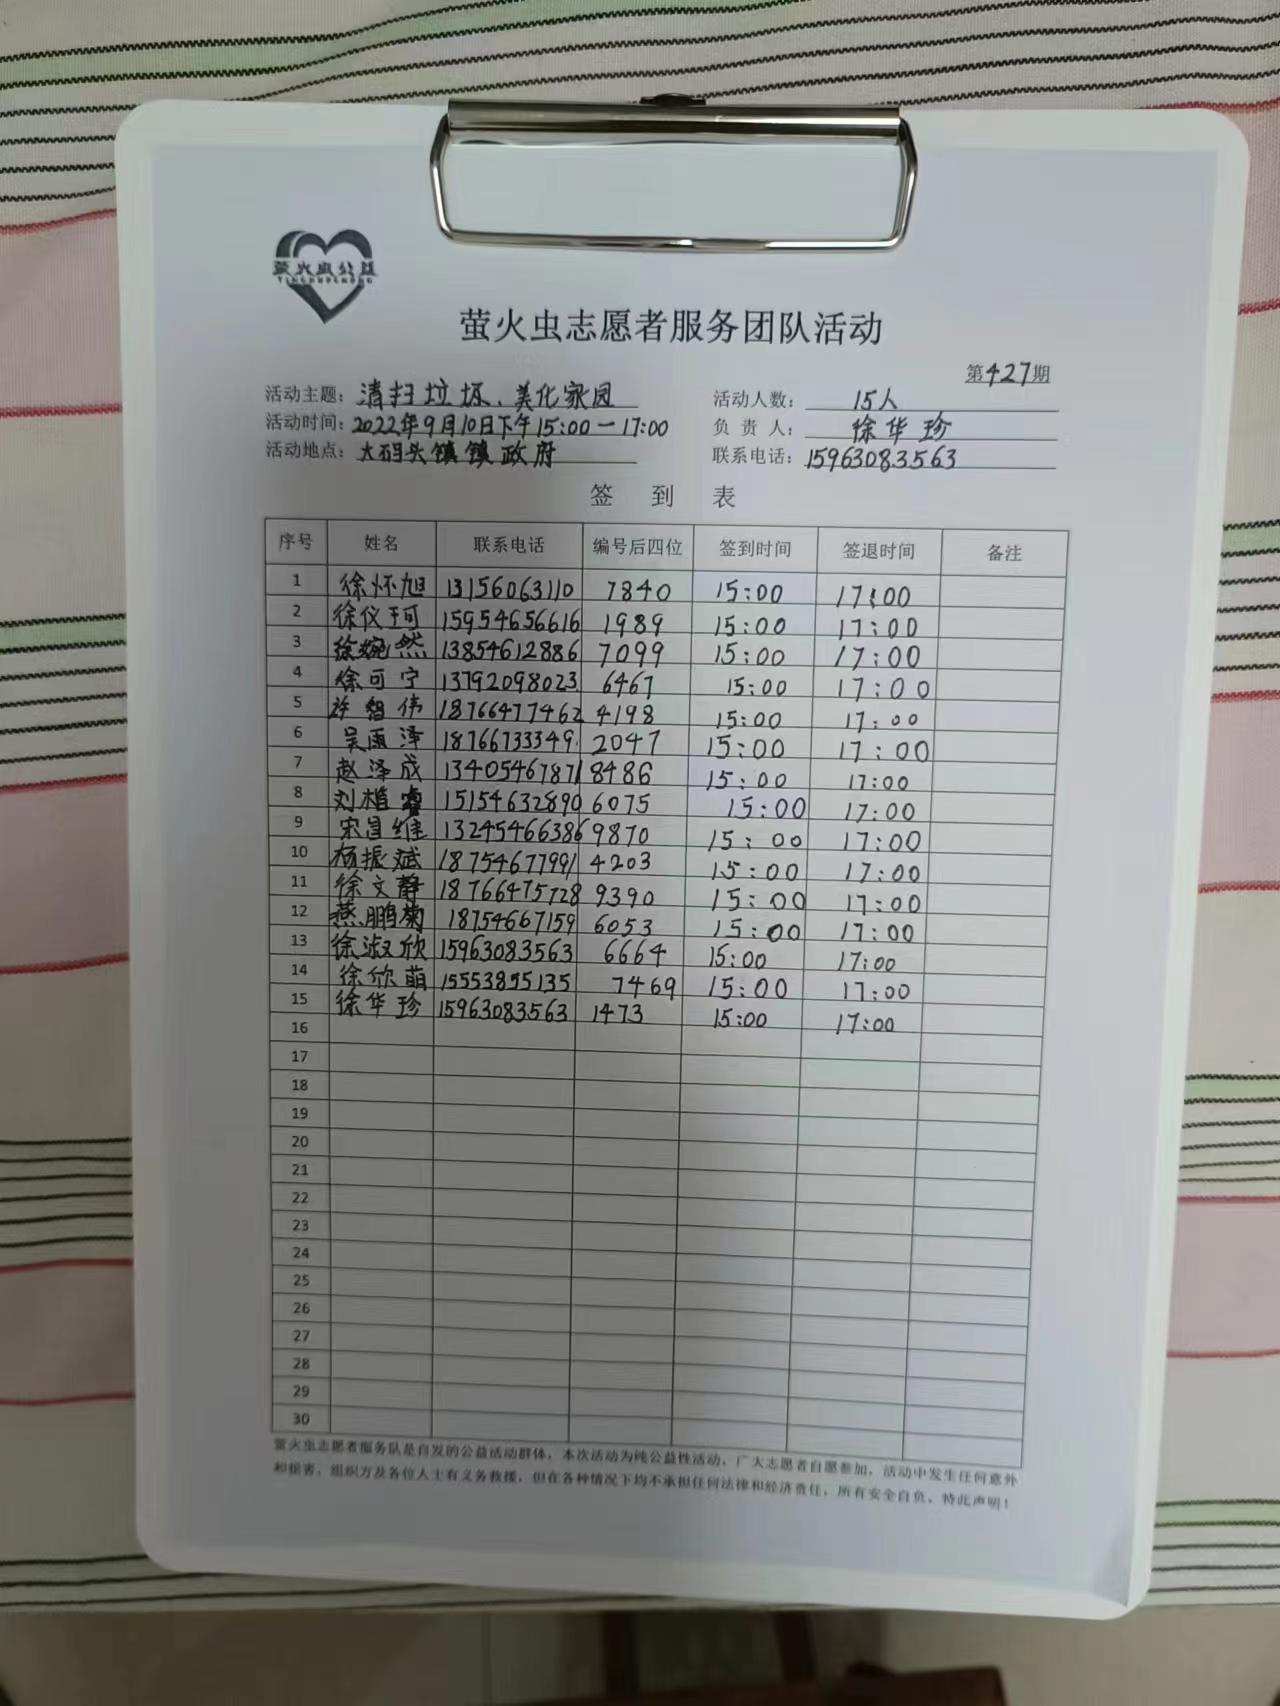 萤火虫公益
YINGHUOCHONG
萤火虫志愿者服务团队活动
第427期
活动主题：清扫垃圾、美化家园 活动人数：15人
活动时间：2022年9月10日下午15:00—17:00 负责人：徐华珍
活动地点：大码头镇镇政府 联系电话：15963083563
签到表
序号 姓名 联系电话 编号后四位 签到时间 签退时间 备注
1 徐怀旭 13156063110 7840 15:00 17:00
2 徐仪珂 15954656616 1989 15:00 17:00
3 徐婉然 13854612886 7099 15:00 17:00
4 徐可宁 13792098023 6467 15:00 17:00
5 许智伟 18766477462 4198 15:00 17:00
6 吴雨泽 18766733349 2047 15:00 17:00
7 赵泽成 13405467871 8486 15:00 17:00
8 刘植睿 15154632890 6075 15:00 17:00
9 宋昌维 13245466386 9870 15:00 17:00
10 杨振斌 18754677991 4203 15:00 17:00
11 徐文静 18766475728 9390 15:00 17:00
12 燕鹏菊 18754667159 6053 15:00 17:00
13 徐淑欣 15963083563 6664 15:00 17:00
14 徐欣萌 15553895135 7469 15:00 17:00
15 徐华珍 15963083563 1473 15:00 17:00
16
17
18
19
20
21
22
23
24
25
26
27
28
29
30
萤火虫志愿者服务队是自发的公益活动群体，本次活动为纯公益性活动，广大志愿者自愿参加，活动中发生任何意外
和损害，组织方及各位人士有义务救援，但在各种情况下均不承担任何法律和经济责任，所有安全自负，特此声明！